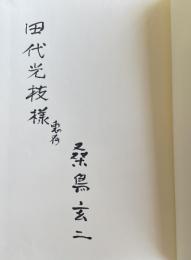 田代光枝様
恵存
桑島玄二